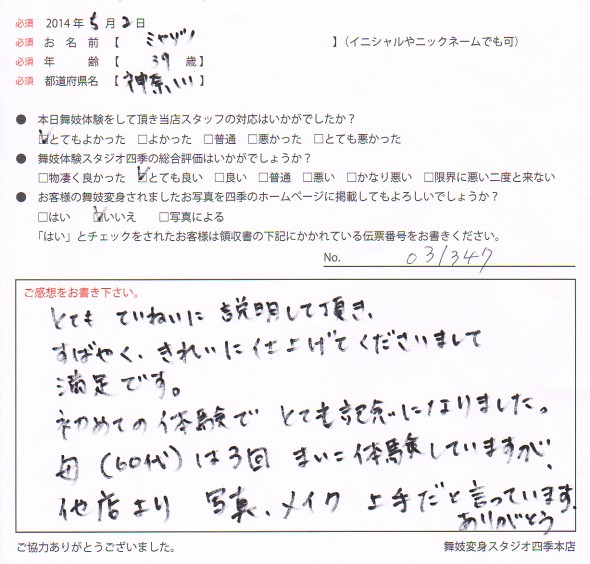 必須 2014年5月2日
必須 お名前【 ミヤゾノ 】(イニシャルやニックネームでも可)
必須 年齢【 39 歳】
必須 都道府県名【 神奈川 】
● 本日舞妓体験をして頂き当店スタッフの対応はいかがでしたか？
☑とてもよかった □よかった □普通 □悪かった □とても悪かった
● 舞妓体験スタジオ四季の総合評価はいかがでしょうか？
□物凄く良かった ☑とても良い □良い □普通 □悪い □かなり悪い □限界に悪い二度と来ない
● お客様の舞妓変身されましたお写真を四季のホームページに掲載してもよろしいでしょうか？
□はい ☑いいえ □写真による
「はい」とチェックをされたお客様は領収書の下記にかかれている伝票番号をお書きください。
No. 031347
ご感想をお書き下さい。
とても ていねいに 説明して頂き、
すばやく、きれいに仕上げてくださいまして
満足です。
初めての体験で とても記念になりました。
母(60代)は3回 まいこ体験していますが、
他店より 写真、メイク 上手だと言っています。
ありがとう
ご協力ありがとうございました。
舞妓変身スタジオ四季本店